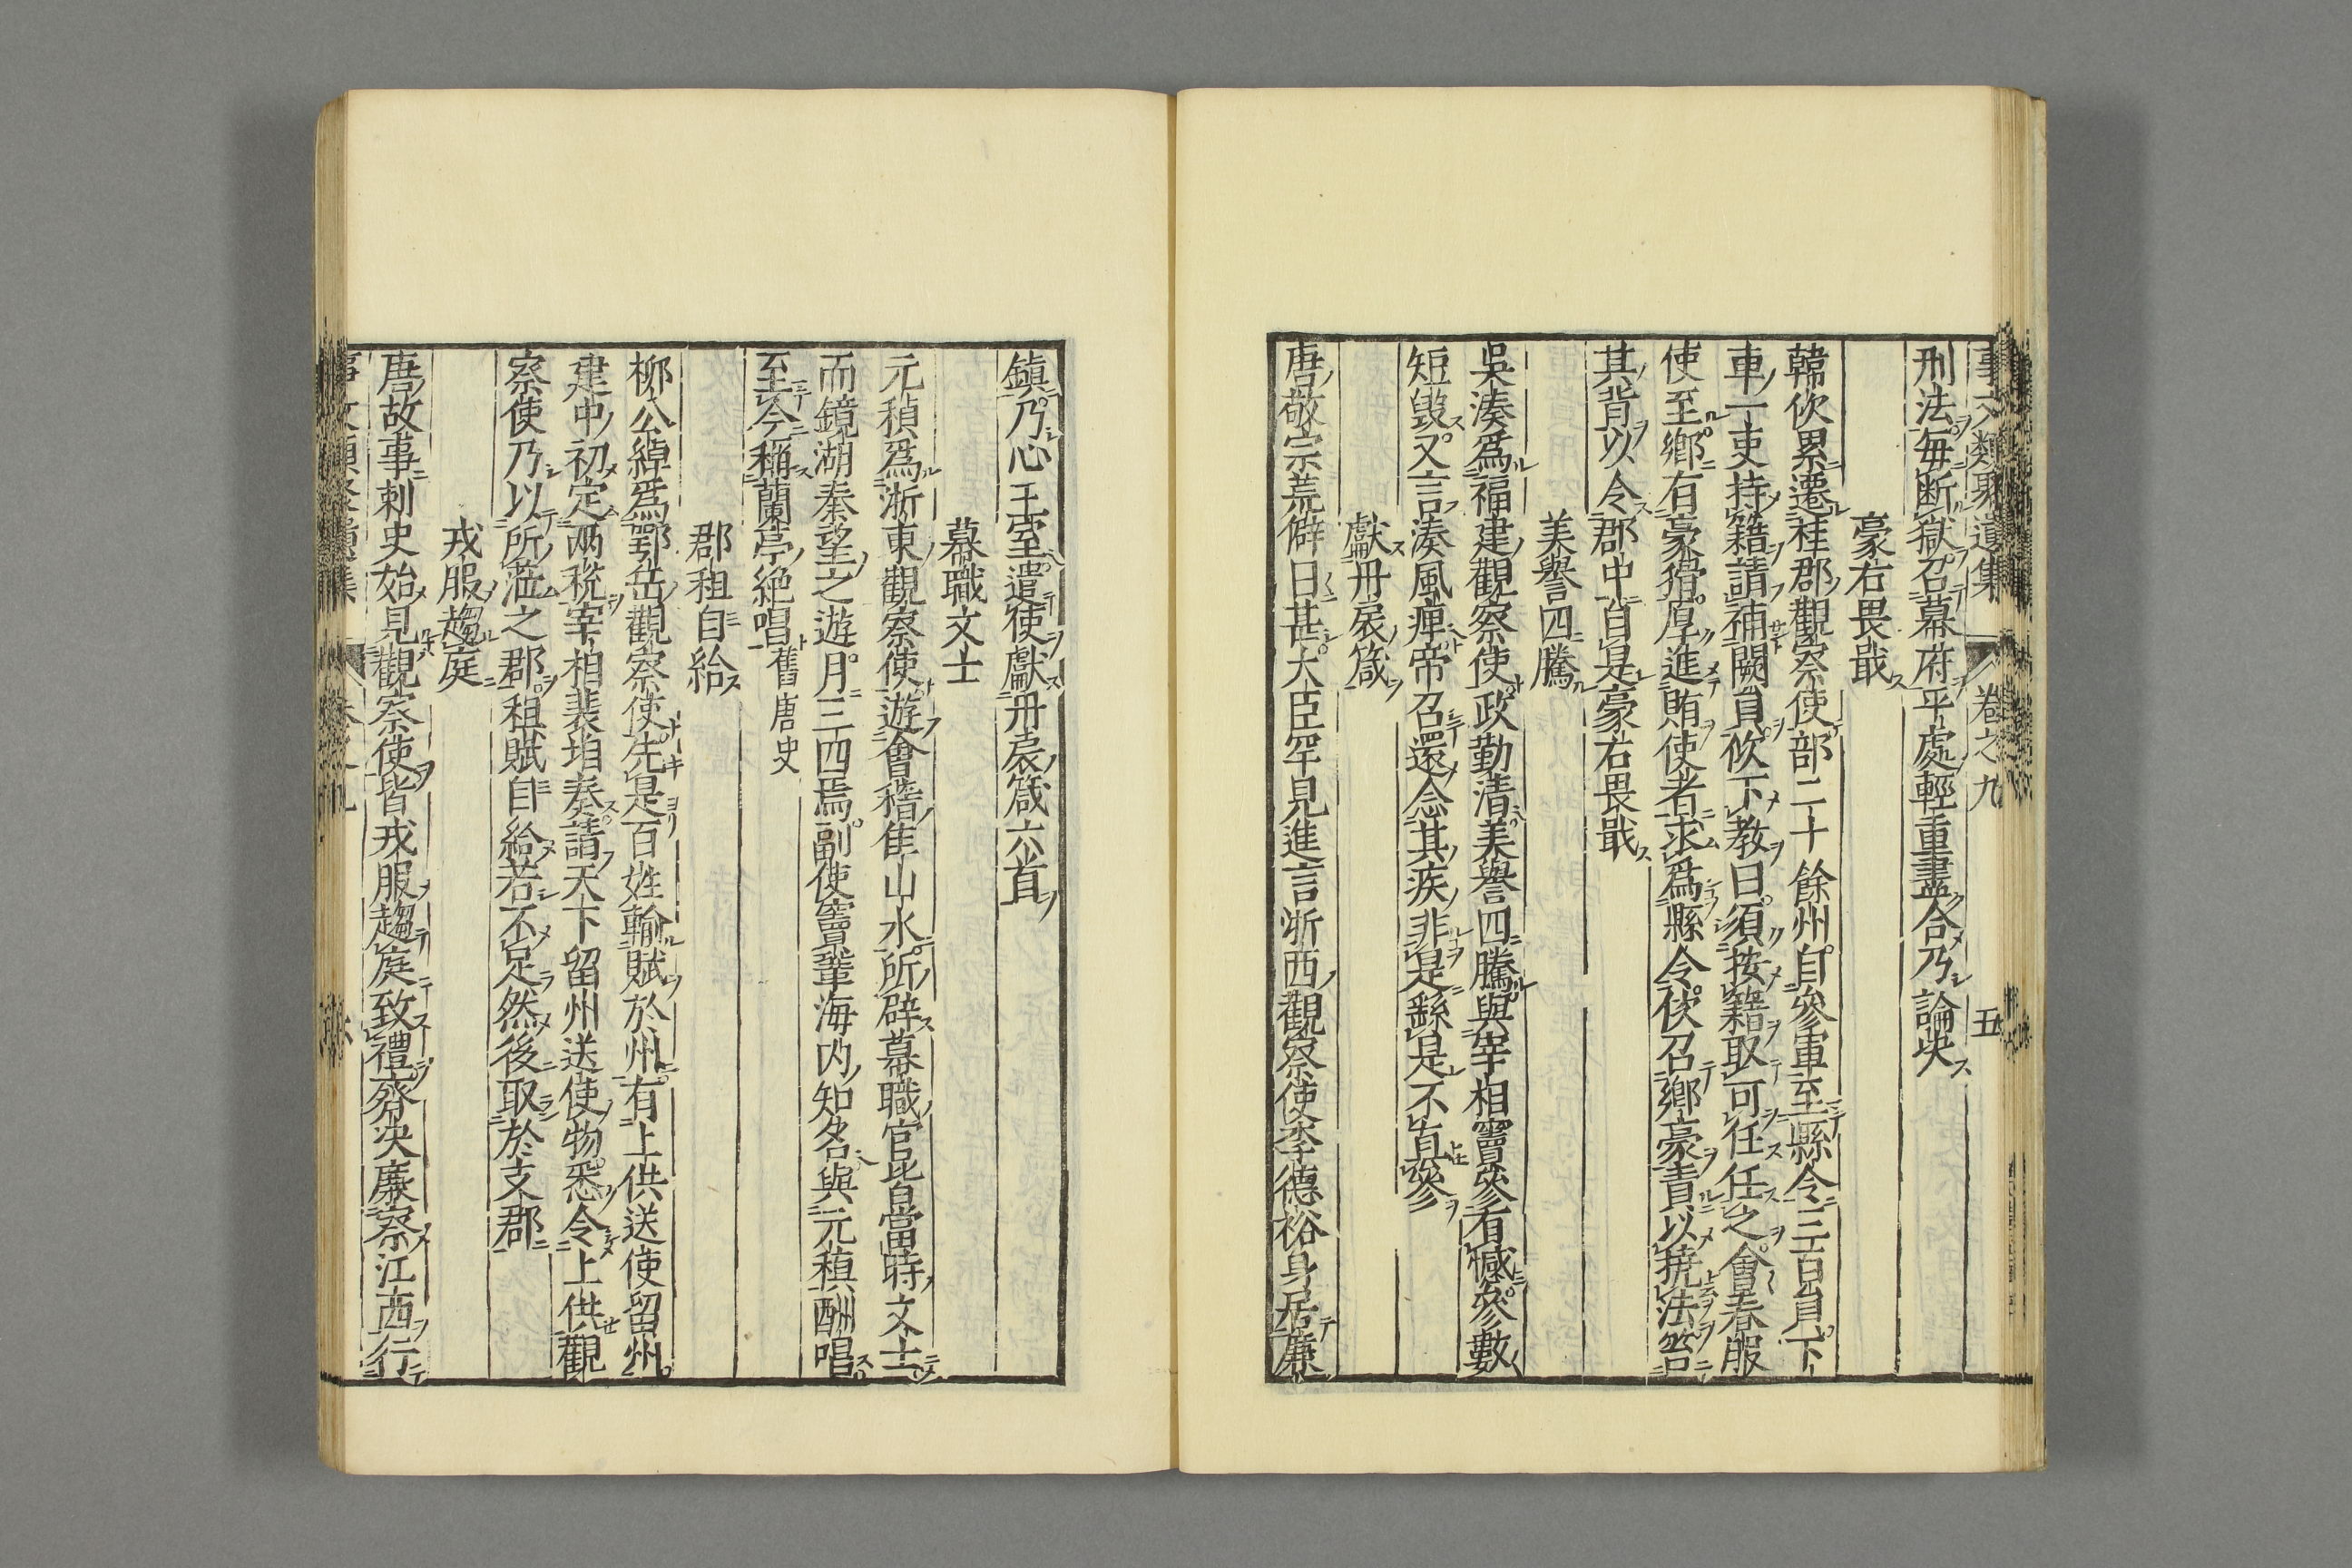 事文類聚遺集 卷之九 五
刑法毎断獄召幕府平處輕重盡合乃論决
豪右畏戢
韓佽累遷桂郡觀察使部二十餘州自參軍至縣令三百員下
車一吏持籍請補闕員佽下教曰須按籍取可任任之會春服
使至鄕有豪猾厚進賄使者求爲縣令佽召鄕豪責以撓法笞
其背以令郡中自是豪右畏戢
美譽四騰
吳湊爲福建觀察使政勤清美譽四騰與宰相竇參有憾參數
短毀又言湊風痺帝召還念其疾非是繇是不直參
獻丹扆箴
唐敬宗荒僻日甚大臣罕見進言浙西觀察使李德裕身居廉
鎮乃心王室遣使獻丹扆箴六首
幕職文士
元稹爲浙東觀察使遊會稽隹山水所辟幕職官皆當時文士
而鏡湖秦望之遊月三四焉副使竇鞏海内知名與元稹酬唱
至今稱蘭亭絶唱舊唐史
郡租自給
柳公綽爲鄂岳觀察使先是百姓輸賦於州有上供送使留州
建中初定兩稅宰相裴垍奏請天下留州送使物悉令上供觀
察使乃以所涖之郡租賦自給若不足然後取於支郡
戎服趨庭
唐故事刺史始見觀察使皆戎服趨庭致禮齊决廉察江西行